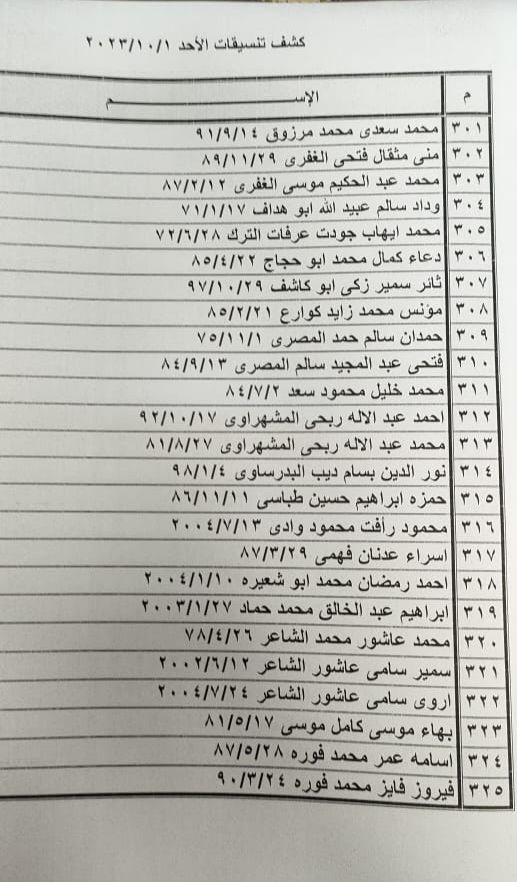 كشف تنسيقات الأحد ٢٠٢٣/١٠/١
م الإســـــــــــــــــــــم
٣٠١ محمد سعدى محمد مرزوق ٩١/٩/١٤
٣٠٢ منى مثقال فتحى الغفرى ٨٩/١١/٢٩
٣٠٣ محمد عبد الحكيم موسى الغفرى ٨٧/٢/١٢
٣٠٤ وداد سالم عبيد الله ابو هداف ٧١/١/١٧
٣٠٥ محمد ايهاب جودت عرفات الترك ٧٢/٦/٢٨
٣٠٦ دعاء كمال محمد ابو حجاج ٨٥/٤/٢٢
٣٠٧ ثائر سمير زكى ابو كاشف ٩٧/١٠/٢٩
٣٠٨ مؤنس محمد زايد كوارع ٨٥/٢/٢١
٣٠٩ حمدان سالم حمد المصرى ٧٥/١١/١
٣١٠ فتحى عبد المجيد سالم المصرى ٨٤/٩/١٣
٣١١ محمد خليل محمود سعد ٨٤/٧/٢
٣١٢ احمد عبد الاله ربحى المشهراوى ٩٢/١٠/١٧
٣١٣ محمد عبد الاله ربحى المشهراوى ٨١/٨/٢٧
٣١٤ نور الدين بسام ديب البدرساوى ٩٨/١/٤
٣١٥ حمزه ابراهيم حسين طباسى ٨٦/١١/١١
٣١٦ محمود رأفت محمود وادى ٢٠٠٤/٧/١٣
٣١٧ اسراء عدنان فهمى ٨٧/٣/٢٩
٣١٨ احمد رمضان محمد ابو شعيره ٢٠٠٤/١/١٠
٣١٩ ابراهيم عبد الخالق محمد حماد ٢٠٠٣/١/٢٧
٣٢٠ محمد عاشور محمد الشاعر ٧٨/٤/٢٦
٣٢١ سمير سامى عاشور الشاعر ٢٠٠٢/٦/١٢
٣٢٢ اروى سامى عاشور الشاعر ٢٠٠٤/٧/٢٤
٣٢٣ بهاء موسى كامل موسى ٨١/٥/١٧
٣٢٤ اسامه عمر محمد فوره ٨٧/٥/٢٨
٣٢٥ فيروز فايز محمد فوره ٩٠/٣/٢٤